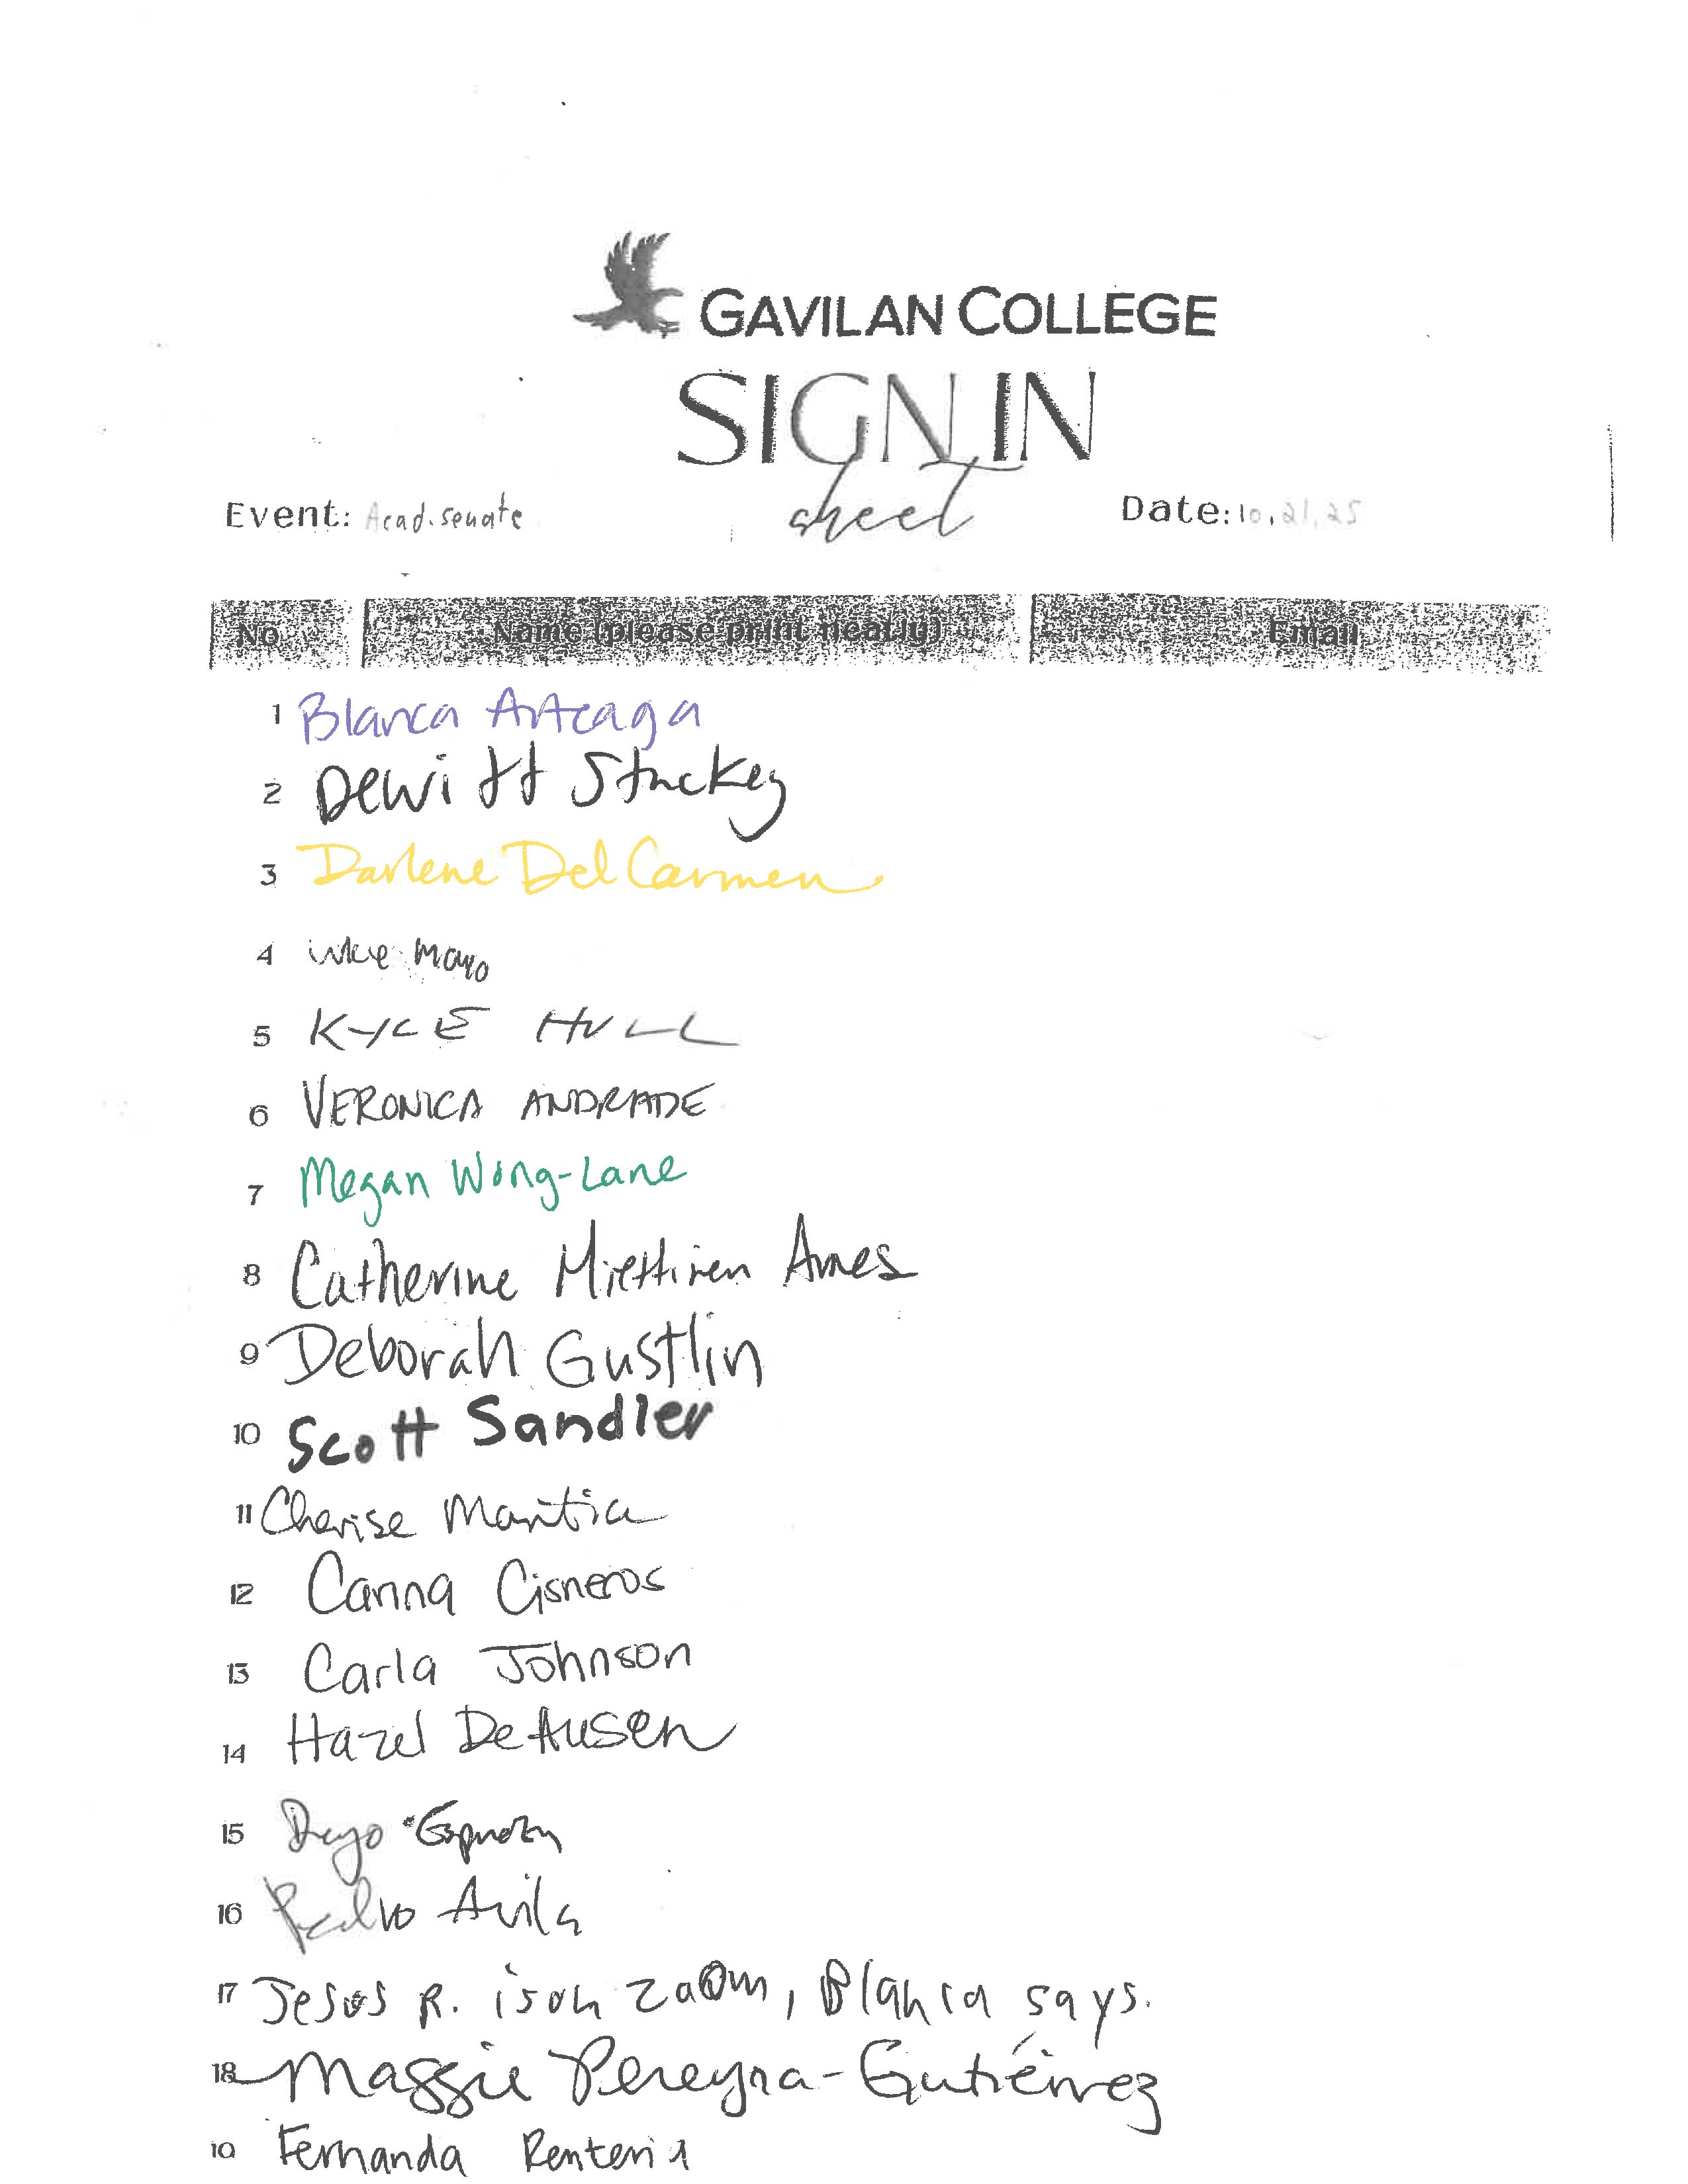 GAVILAN COLLEGE
SIGN IN
sheet
Event: Acad. senate
Date: 10.21.25
No. Name (please print neatly) Email
1 Blanca Arteaga
2 Dewitt Stuckey
3 Darlene Del Carmen
4 Mayo
5 KYLE HULL
6 VERONICA ANDRADE
7 Megan Wong-Lane
8 Catherine Miettinen Ames
9 Deborah Gustlin
10 Scott Sandler
11 Cherise Mantia
12 Carina Cisneros
13 Carla Johnson
14 Hazel DeAusen
15 Diego Espinoza
16 Pedro Avila
17 Jesus R. is on zoom, Blanca says.
18 Maggie Pereyra-Gutiérrez
19 Fernanda Renteria